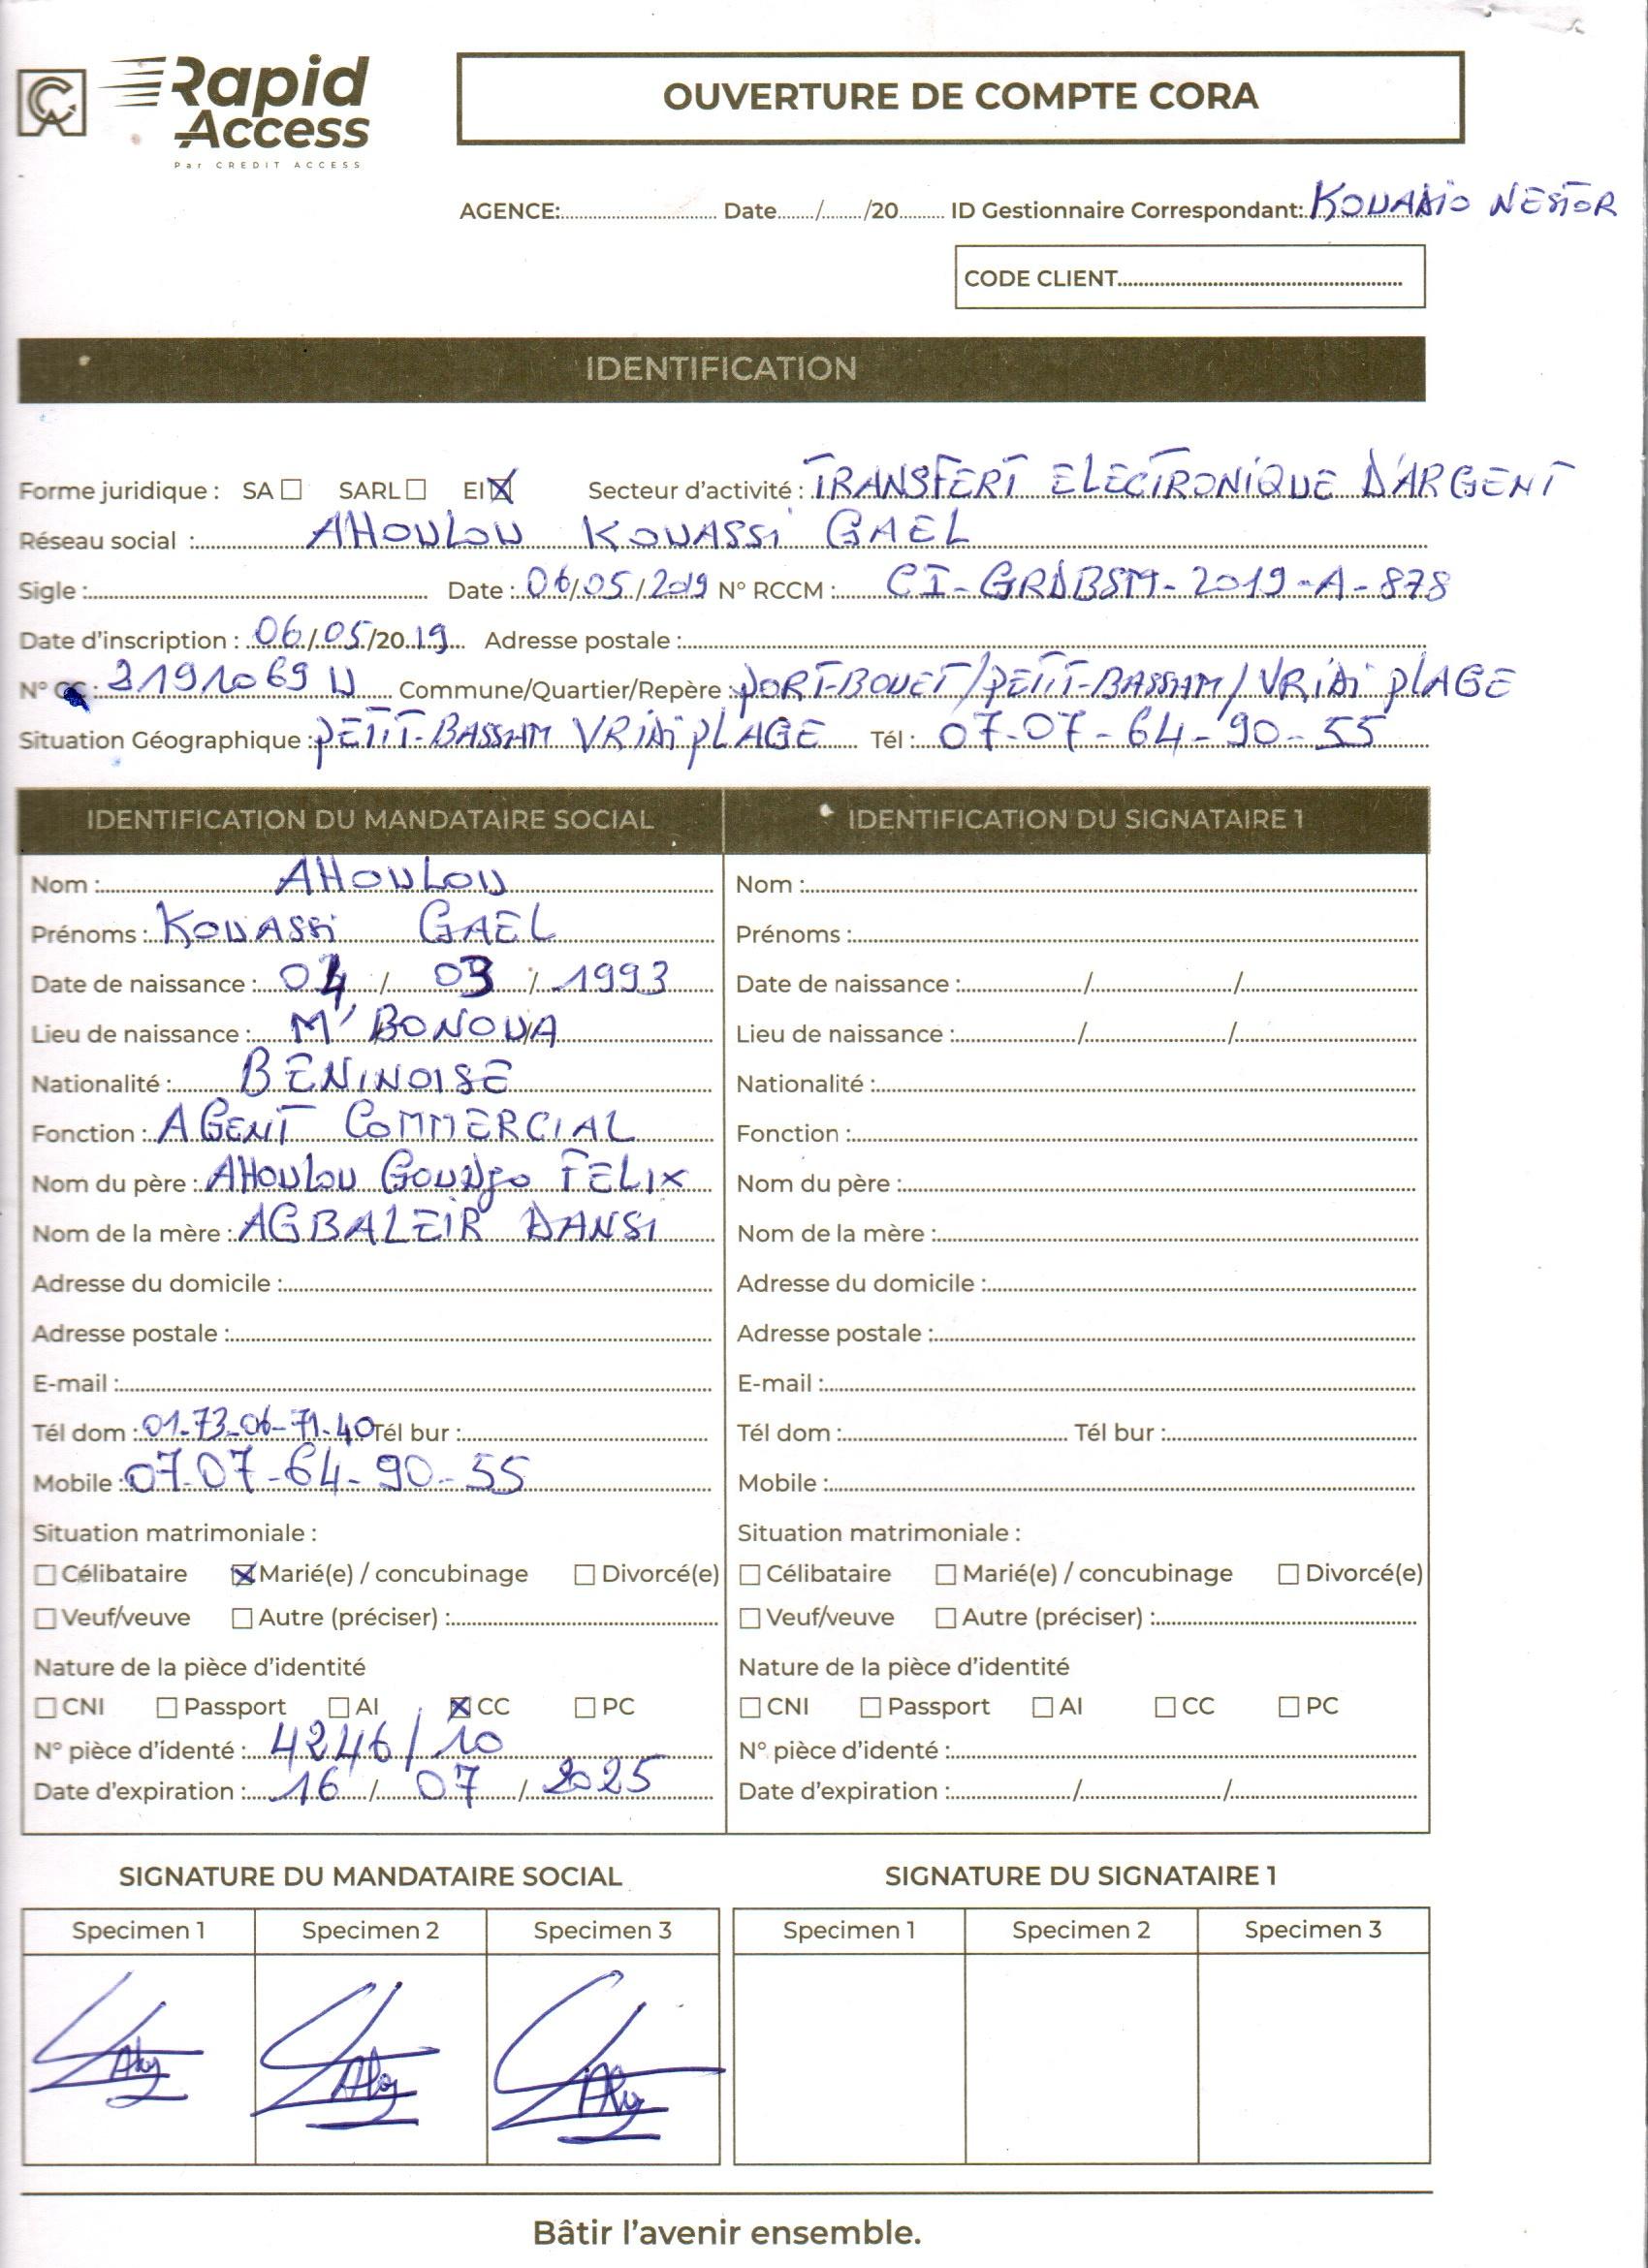 Rapid
Access
Par CREDIT ACCESS
OUVERTURE DE COMPTE CORA
AGENCE:.......... Date....../....../20...... ID Gestionnaire Correspondant: KOUADIO NESTOR
CODE CLIENT..........
IDENTIFICATION
Forme juridique : SA ☐ SARL ☐ EI ☒ Secteur d'activité : TRANSFERT ELECTRONIQUE D'ARGENT
Réseau social : AHOULOU KOUASSI GAEL
Sigle :.......... Date : 06/05/2019 N° RCCM : CI-GRDBSM-2019-A-878
Date d'inscription : 06/05/2019 Adresse postale :..........
N° CC : 3191069 U Commune/Quartier/Repère : PORT-BOUET/PETIT-BASSAM/VRIDI PLAGE
Situation Géographique : PETIT-BASSAM VRIDI PLAGE Tél : 07-07-64-90-55
IDENTIFICATION DU MANDATAIRE SOCIAL
Nom : AHOULOU
Prénoms : KOUASSI GAEL
Date de naissance : 04 / 03 / 1993
Lieu de naissance : M'BONOUA
Nationalité : BENINOISE
Fonction : AGENT COMMERCIAL
Nom du père : AHOULOU GOUDJO FELIX
Nom de la mère : AGBALEIR DANSI
Adresse du domicile :..........
Adresse postale :..........
E-mail :..........
Tél dom : 01-73-06-71-40 Tél bur :..........
Mobile : 07-07-64-90-55
Situation matrimoniale :
☐ Célibataire ☒ Marié(e) / concubinage ☐ Divorcé(e)
☐ Veuf/veuve ☐ Autre (préciser) :..........
Nature de la pièce d'identité
☐ CNI ☐ Passport ☐ AI ☒ CC ☐ PC
N° pièce d'identé : 4246/10
Date d'expiration : 16 / 07 / 2025
IDENTIFICATION DU SIGNATAIRE 1
Nom :..........
Prénoms :..........
Date de naissance :........../........../..........
Lieu de naissance :........../........../..........
Nationalité :..........
Fonction :..........
Nom du père :..........
Nom de la mère :..........
Adresse du domicile :..........
Adresse postale :..........
E-mail :..........
Tél dom :.......... Tél bur :..........
Mobile :..........
Situation matrimoniale :
☐ Célibataire ☐ Marié(e) / concubinage ☐ Divorcé(e)
☐ Veuf/veuve ☐ Autre (préciser) :..........
Nature de la pièce d'identité
☐ CNI ☐ Passport ☐ AI ☐ CC ☐ PC
N° pièce d'identé :..........
Date d'expiration :........../........../..........
SIGNATURE DU MANDATAIRE SOCIAL
Specimen 1 Specimen 2 Specimen 3
SIGNATURE DU SIGNATAIRE 1
Specimen 1 Specimen 2 Specimen 3
Bâtir l'avenir ensemble.